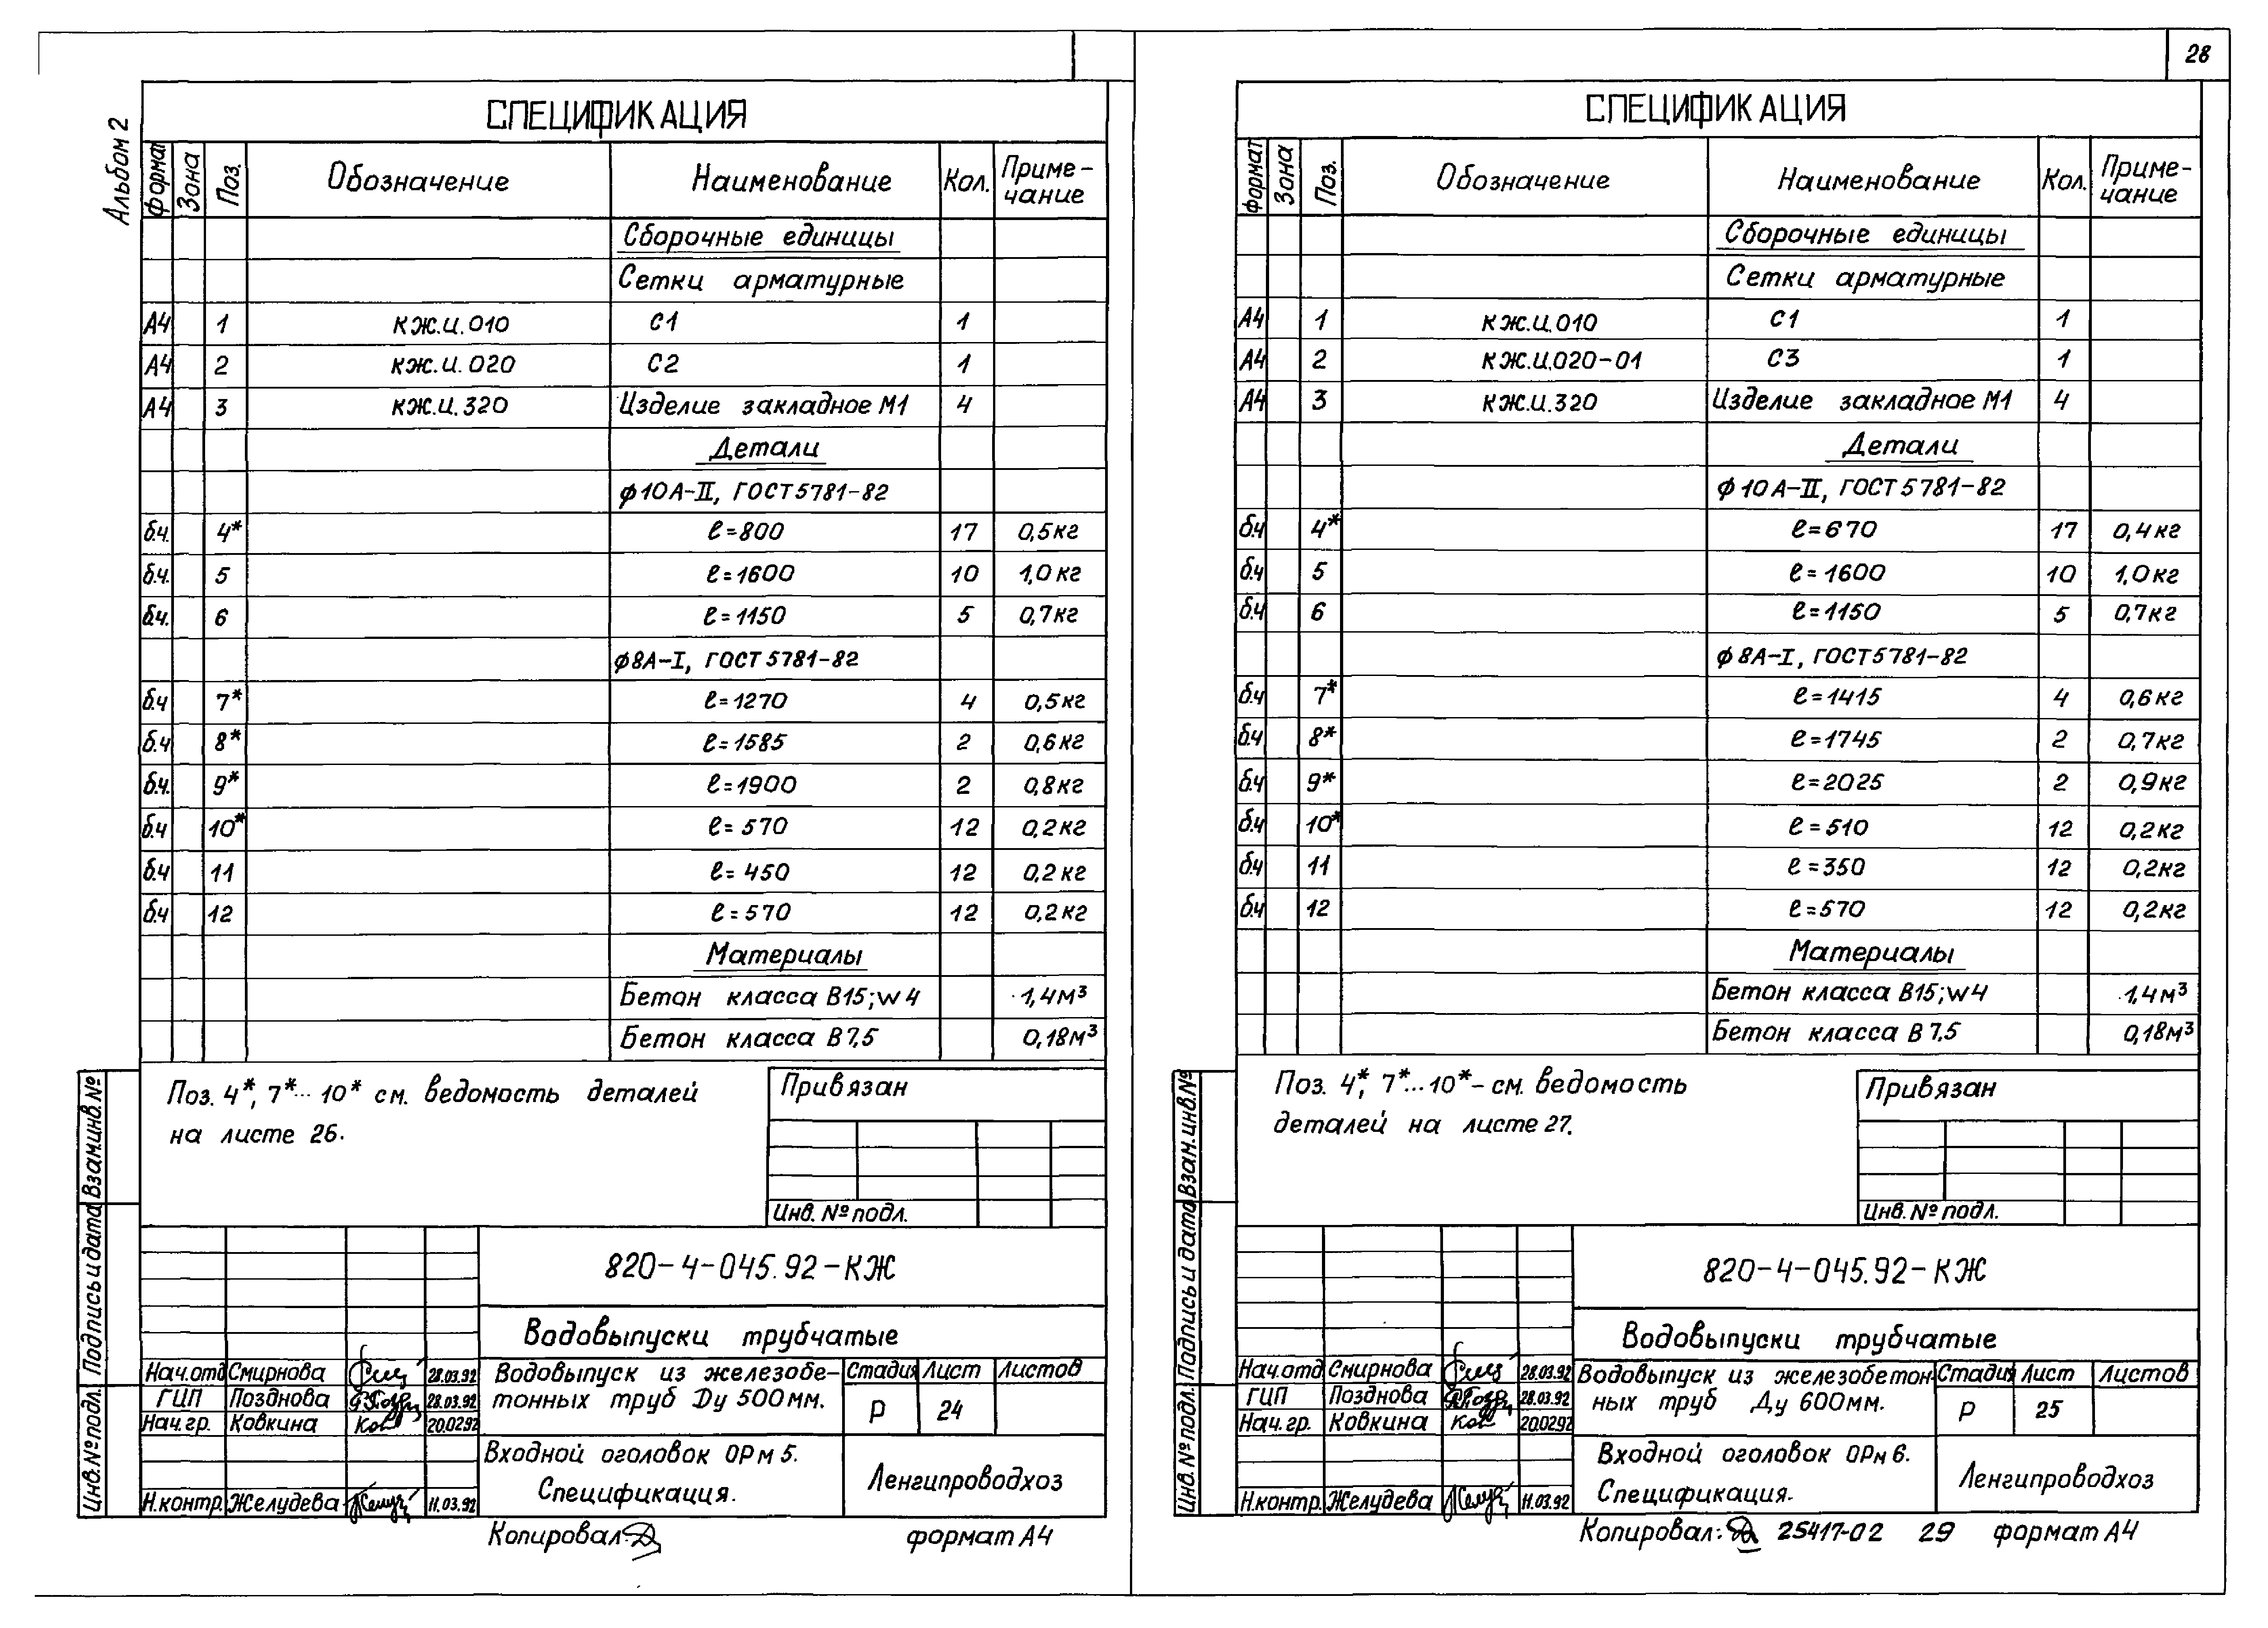 28
Альбом 2
СПЕЦИФИКАЦИЯ
Формат Зона Поз. Обозначение Наименование Кол. Приме-чание
Сборочные единицы
Сетки арматурные
А4 1 КЖ.И.010 С1 1
А4 2 КЖ.И.020 С2 1
А4 3 КЖ.И.320 Изделие закладное М1 4
Детали
ф10А-II, ГОСТ 5781-82
б.ч. 4* ℓ=800 17 0,5кг
б.ч. 5 ℓ=1600 10 1,0кг
б.ч. 6 ℓ=1150 5 0,7кг
ф8А-I, ГОСТ 5781-82
б.ч 7* ℓ=1270 4 0,5кг
б.ч 8* ℓ=1585 2 0,6кг
б.ч. 9* ℓ=1900 2 0,8кг
б.ч 10* ℓ=570 12 0,2кг
б.ч 11 ℓ=450 12 0,2кг
б.ч 12 ℓ=570 12 0,2кг
Материалы
Бетон класса В15; W4 1,4м³
Бетон класса В7,5 0,18м³
Поз. 4*, 7*...10* см. ведомость деталей
на листе 26.
Привязан
Инв. № подл.
Взам.инв.№
Подпись и дата
Инв.№ подл.
820-4-045.92-КЖ
Водовыпуски трубчатые
Нач.отд Смирнова 28.03.92
ГИП Позднова 28.03.92
Нач.гр. Ковкина 20.02.92
Н.контр. Желудева 11.03.92
Водовыпуск из железобе-
тонных труб Ду 500мм.
Стадия Лист Листов
Р 24
Входной оголовок ОРм 5.
Спецификация.
Ленгипроводхоз
Копировал: формат А4
СПЕЦИФИКАЦИЯ
Формат Зона Поз. Обозначение Наименование Кол. Приме-чание
Сборочные единицы
Сетки арматурные
А4 1 КЖ.И.010 С1 1
А4 2 КЖ.И.020-01 С3 1
А4 3 КЖ.И.320 Изделие закладное М1 4
Детали
ф10А-II, ГОСТ 5781-82
б.ч 4* ℓ=670 17 0,4кг
б.ч 5 ℓ=1600 10 1,0кг
б.ч 6 ℓ=1150 5 0,7кг
ф8А-I, ГОСТ 5781-82
б.ч 7* ℓ=1415 4 0,6кг
б.ч 8* ℓ=1745 2 0,7кг
б.ч 9* ℓ=2025 2 0,9кг
б.ч 10* ℓ=510 12 0,2кг
б.ч 11 ℓ=350 12 0,2кг
б.ч 12 ℓ=570 12 0,2кг
Материалы
Бетон класса В15; W4 1,4м³
Бетон класса В7,5 0,18м³
Поз. 4*, 7*...10* - см. ведомость
деталей на листе 27.
Привязан
Инв. № подл.
Взам.инв.№
Подпись и дата
Инв.№ подл.
820-4-045.92-КЖ
Водовыпуски трубчатые
Нач.отд Смирнова 28.03.92
ГИП Позднова 28.03.92
Нач.гр. Ковкина 20.02.92
Н.контр. Желудева 11.03.92
Водовыпуск из железобетон-
ных труб Ду 600мм.
Стадия Лист Листов
Р 25
Входной оголовок ОРм 6.
Спецификация.
Ленгипроводхоз
Копировал: 25417-02 29 формат А4